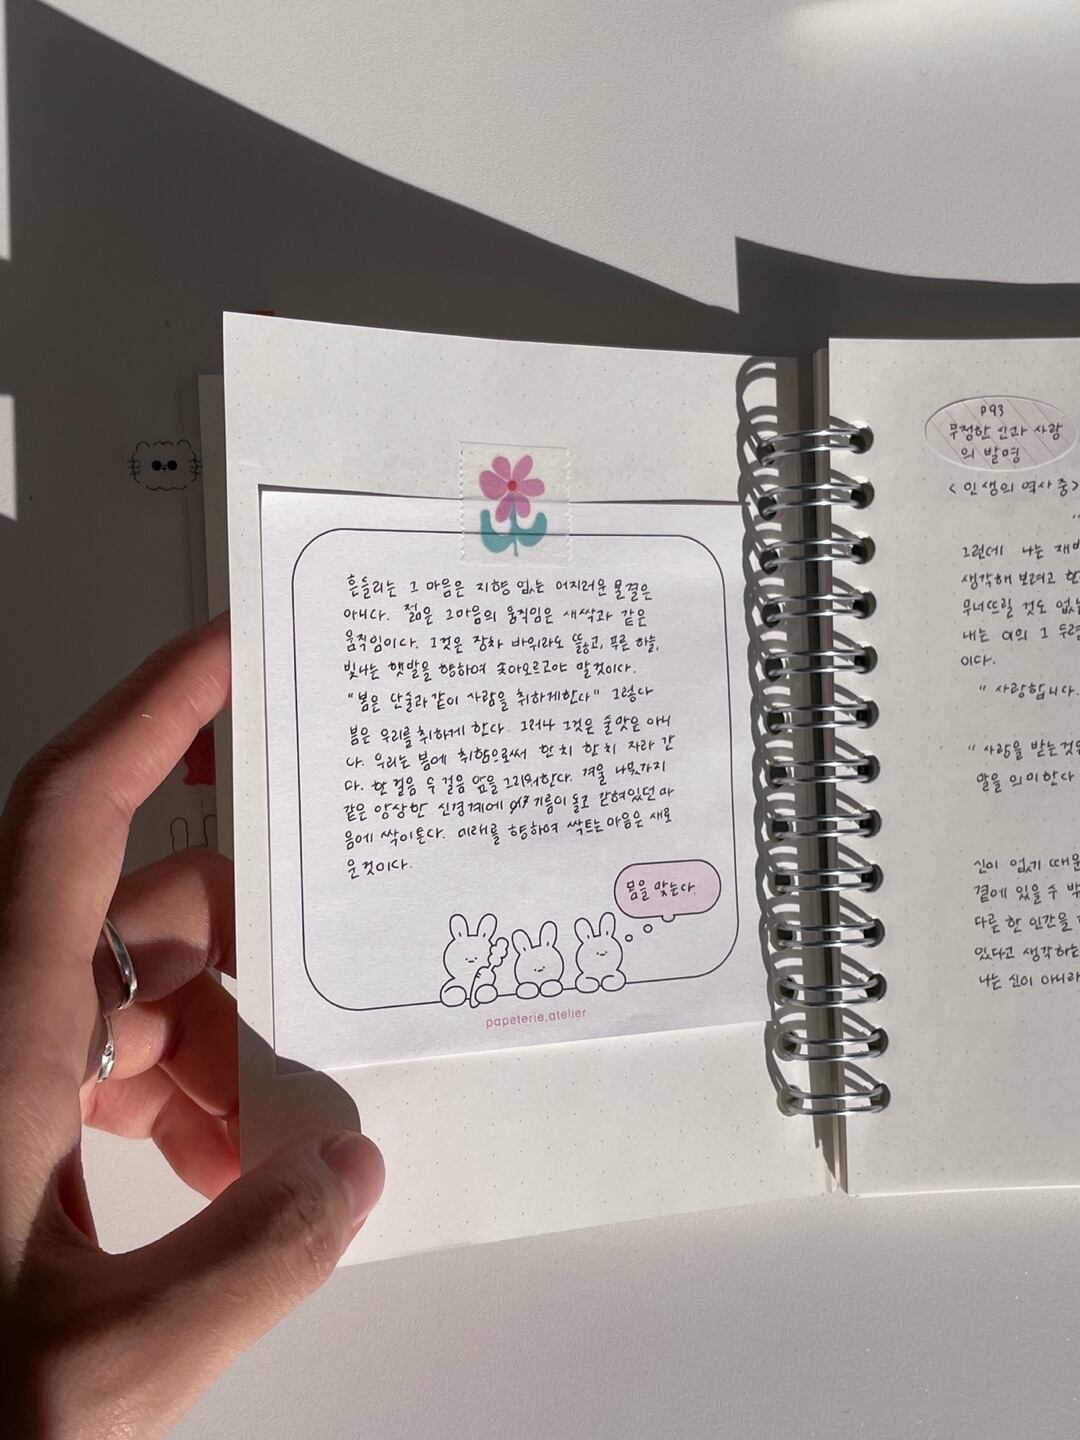 흔들리는 그 마음은 지향 없는 어지러운 물결은
아니다. 젊은 그마음의 움직임은 새싹과 같은
움직임이다. 그것은 장차 바위라도 뚫고, 푸른 하늘,
빛나는 햇발을 향하여 솟아오르고야 말것이다.
"봄은 단술과같이 사람을 취하게한다" 그렇다
봄은 우리를 취하게 한다. 그러나 그것은 술맛은 아니
다. 우리는 봄에 취함으로써 한 치 한 치 자라 간
다. 한 걸음 두 걸음 앞을 그리워한다. 겨울 나뭇가지
같은 앙상한 신경계에 기름이 돌고 갇혀있던 마
음에 싹이튼다. 미래를 향하여 싹트는 마음은 새로
운것이다.
봄을 맞는다.
papeterie.atelier
P93
무정한 신과 사랑
의 발명
< 인생의 역사 중>
그런데 나는
생각해 보려고
무너뜨릴 것도
내는 이의 그
이다.
"사랑합니다.
"사랑을 받는것은
말을 의미한다
신이 없기 때문
곁에 있을 수
다른 한 인간을
있다고 생각하는
나는 신이 아니라